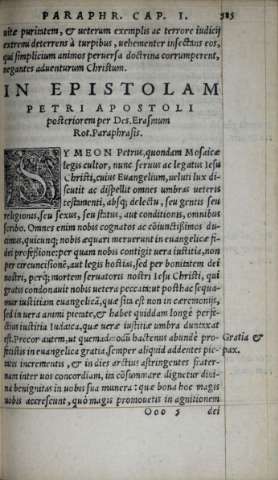 PARAPHR. CAP. I. 585
uitæ purimtem, & ueterum exemplis ac terrore iudicij
extremi deterrens à turpibus, uehementer insectatus eos,
qui simplicium animos peruersa doctrina corrumperent,
negantes aduenturum Christum.
IN EPISTOLAM
PETRI APOSTOLI
posteriorem per Des. Erasmum
Rot. Paraphrasis.
SYMEON Petrus, quondam Mosaicæ
legis cultor, nunc seruus ac legatus Iesu
Christi, cuius Euangelium, ueluti lux di-
scutit ac dispellit omnes umbras ueteris
testamenti, absq; delectu, seu gentis seu
religionis, seu sexus, seu status, aut conditionis, omnibus
scribo. Omnes enim nobis cognatos ac cõiunctißimos du-
cimus, quicunq; nobis æquari meruerunt in euangelicæ fi-
dei professione: per quam nobis contigit uera iustitia, non
per circuncisionẽ, aut legis hostias, sed per bonitatem dei
nostri, perq; mortem seruatoris nostri Iesu Christi, qui
gratis condonauit nobis uetera peccata: ut posthac sequa-
mur iustitiam euangelicã, quæ sita est non in cæremonijs,
sed in uera animi pietate, & habet quiddam longè perfe-
ctius iustitia Iudaica, quæ ueræ iustitiæ umbra duntaxat
est. Precor autem, ut quemadmodũ hactenus abundè pro-
fecistis in euangelica gratia, semper aliquid addentes pie-
tatis incrementis, & in dies arctius astringentes frater-
nam inter uos concordiam, in cõsummare dignetur diui-
na benignitas in uobis sua munera: quæ bona hoc magis
uobis accrescunt, quò magis promouetis in agnitionem
Gratia &
pax.
Ooo 5 dei